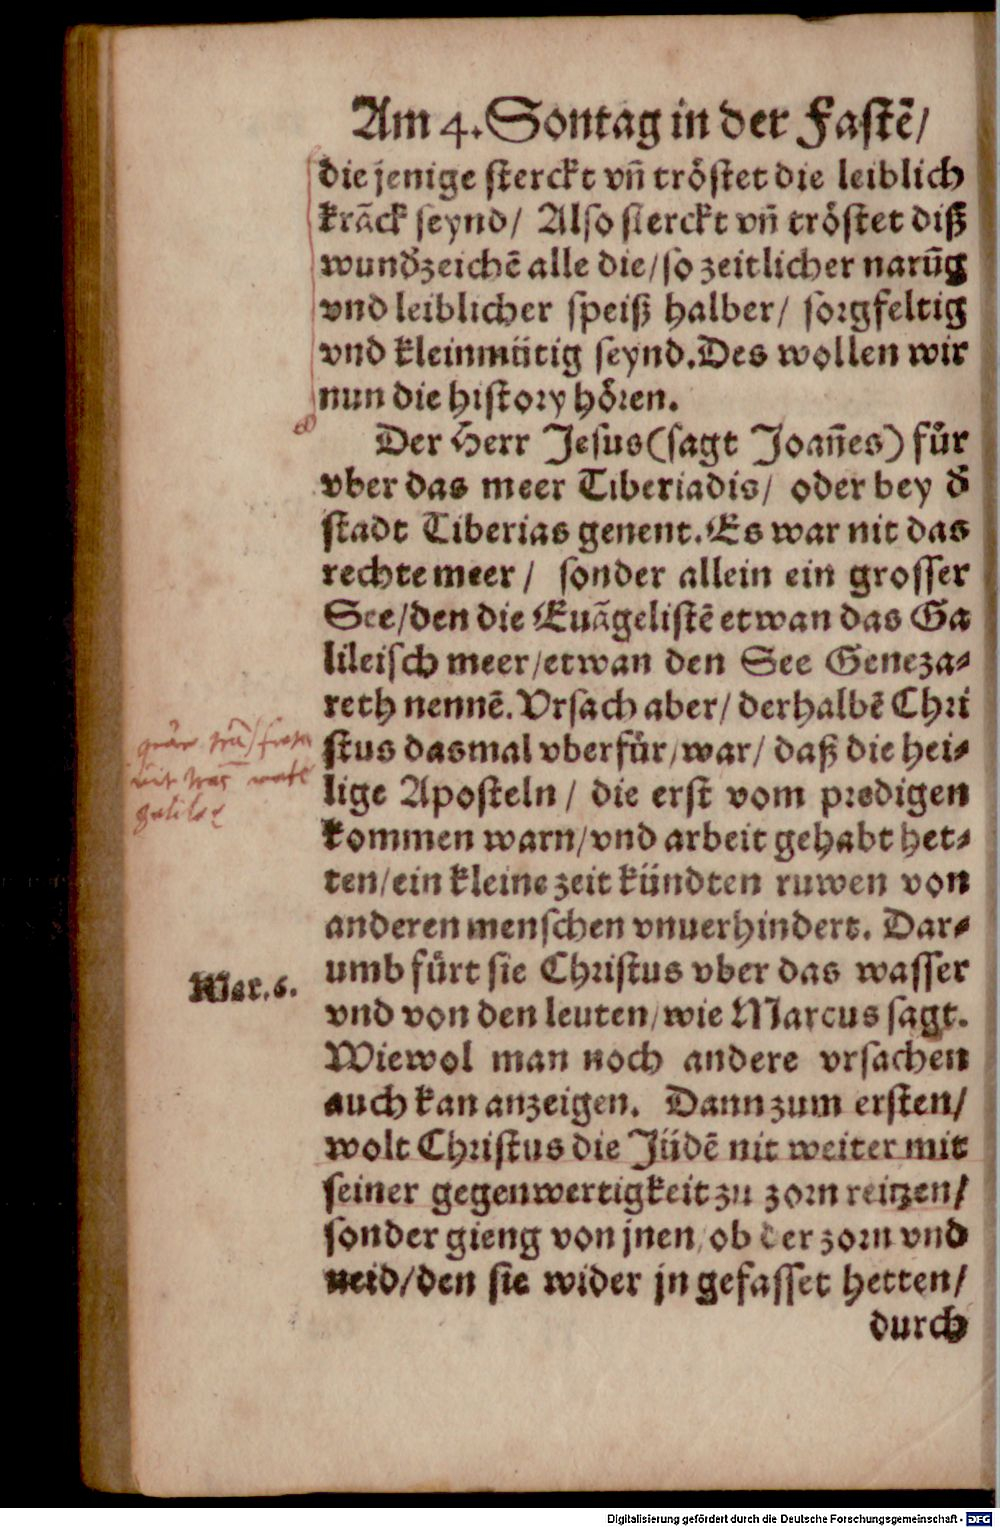 Am 4. Sontag in der Fastē/
die jenige sterckt vñ tröstet die leiblich
krāck seynd/ Also sterckt vñ tröstet diß
wundzeichē alle die/so zeitlicher narūg
vnd leiblicher speiß halber/ sorgfeltig
vnd kleinmütig seynd. Des wollen wir
nun die history hören.
Der Herr Jesus (sagt Joañes) fůr
vber das meer Tiberiadis/ oder bey d̄
stadt Tiberias genent. Es war nit das
rechte meer/ sonder allein ein grosser
See/den die Euāgelistē etwan das Ga
lileisch meer/etwan den See Geneza⸗
reth nennē. Vrsach aber/ derhalbē Chri
stus dasmal vberfůr/war/ daß die hei⸗
lige Aposteln/ die erst vom predigen
kommen warn/vnd arbeit gehabt het⸗
ten/ein kleine zeit kündten ruwen von
anderen menschen vnuerhindert. Dar⸗
Mar. 6.
umb fůrt sie Christus vber das wasser
vnd von den leuten/wie Marcus sagt.
Wiewol man noch andere vrsachen
auch kan anzeigen. Dann zum ersten/
wolt Christus die Jüdē nit weiter mit
seiner gegenwertigkeit zu zorn reitzen/
sonder gieng von jnen/ob der zorn vnd
neid/den sie wider jn gefasset hetten/
durch
Digitalisierung gefördert durch die Deutsche Forschungsgemeinschaft - DFG